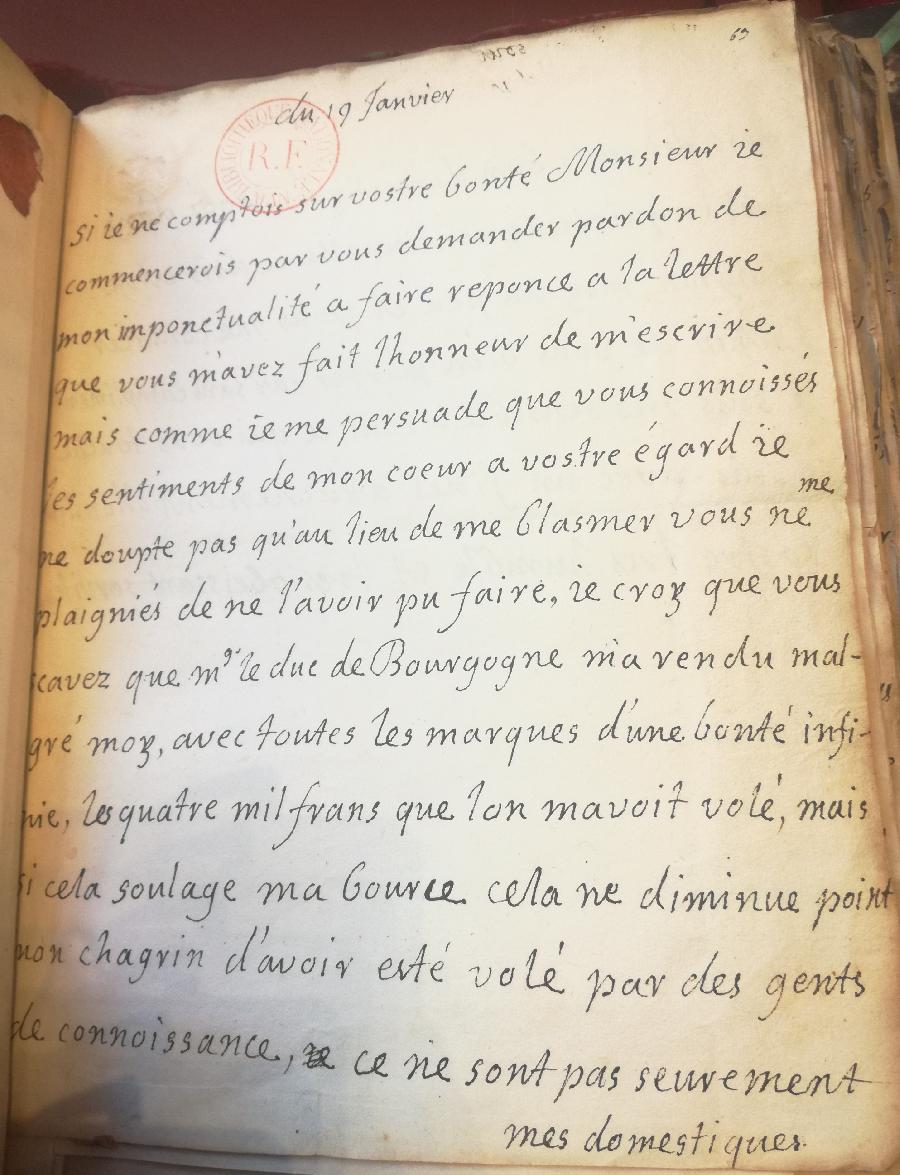 63
du 19 Janvier
R.F.
si ie ne comptois sur vostre bonté Monsieur ie
commencerois par vous demander pardon de
mon imponctualité a faire reponce a la lettre
que vous m'avez fait lhonneur de m'escrire
mais comme ie me persuade que vous connoissés
les sentiments de mon coeur a vostre égard ie
me
ne doupte pas qu'au lieu de me blasmer vous ne
plaigniés de ne l'avoir pu faire, ie croy que vous
scavez que mgr le duc de Bourgogne m'a rendu mal-
gré moy, avec toutes les marques d'une bonté infi-
nie, les quatre mil frans que lon mavoit volé, mais
si cela soulage ma bource cela ne diminue point
mon chagrin d'avoir esté volé par des gents
de connoissance, ce ne sont pas seurement
mes domestiques